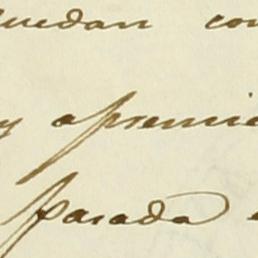 quedan con
y apremio
parada